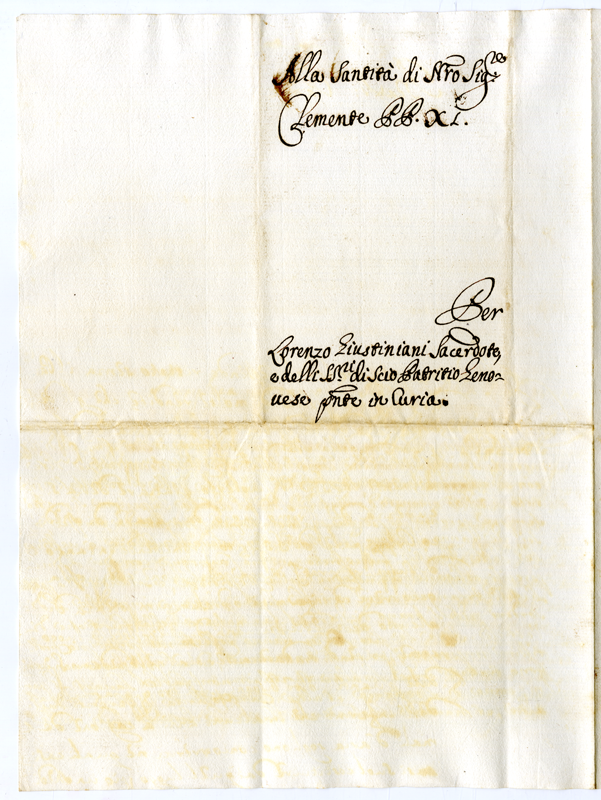 Alla Santità di Nro Sigre
Clemente PP. XI.
Per
Lorenzo Giustiniani Sacerdote,
e delli SSri di Scio Patritio Geno-
vese pnte in Curia.